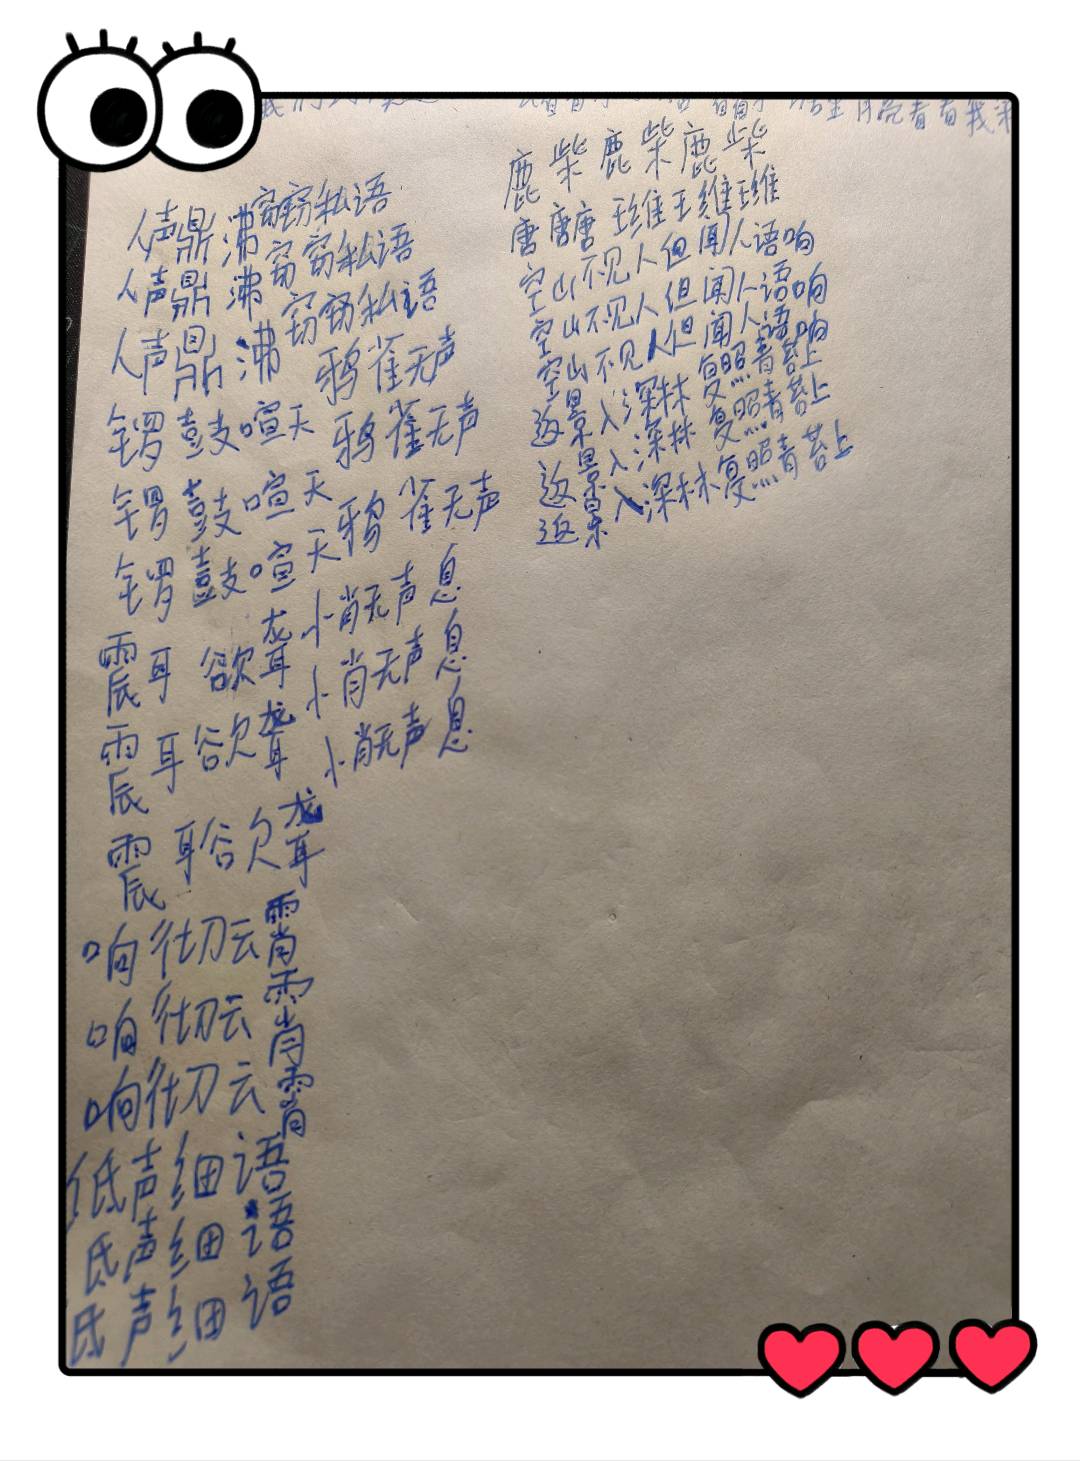 人声鼎沸 窃窃私语
人声鼎沸 窃窃私语
人声鼎沸 窃窃私语
锣鼓喧天 鸦雀无声
锣鼓喧天 鸦雀无声
锣鼓喧天 鸦雀无声
震耳欲聋 小肖无声息
震耳欲聋 小肖无声息
震耳欲聋 小肖无声息
响彻云霄
响彻云霄
响彻云霄
低声细语
低声细语
低声细语
鹿柴鹿柴鹿柴
唐唐唐王维王维王维
空山不见人但闻人语响
空山不见人但闻人语响
空山不见人但闻人语响
返景入深林复照青苔上
返景入深林复照青苔上
返景入深林复照青苔上